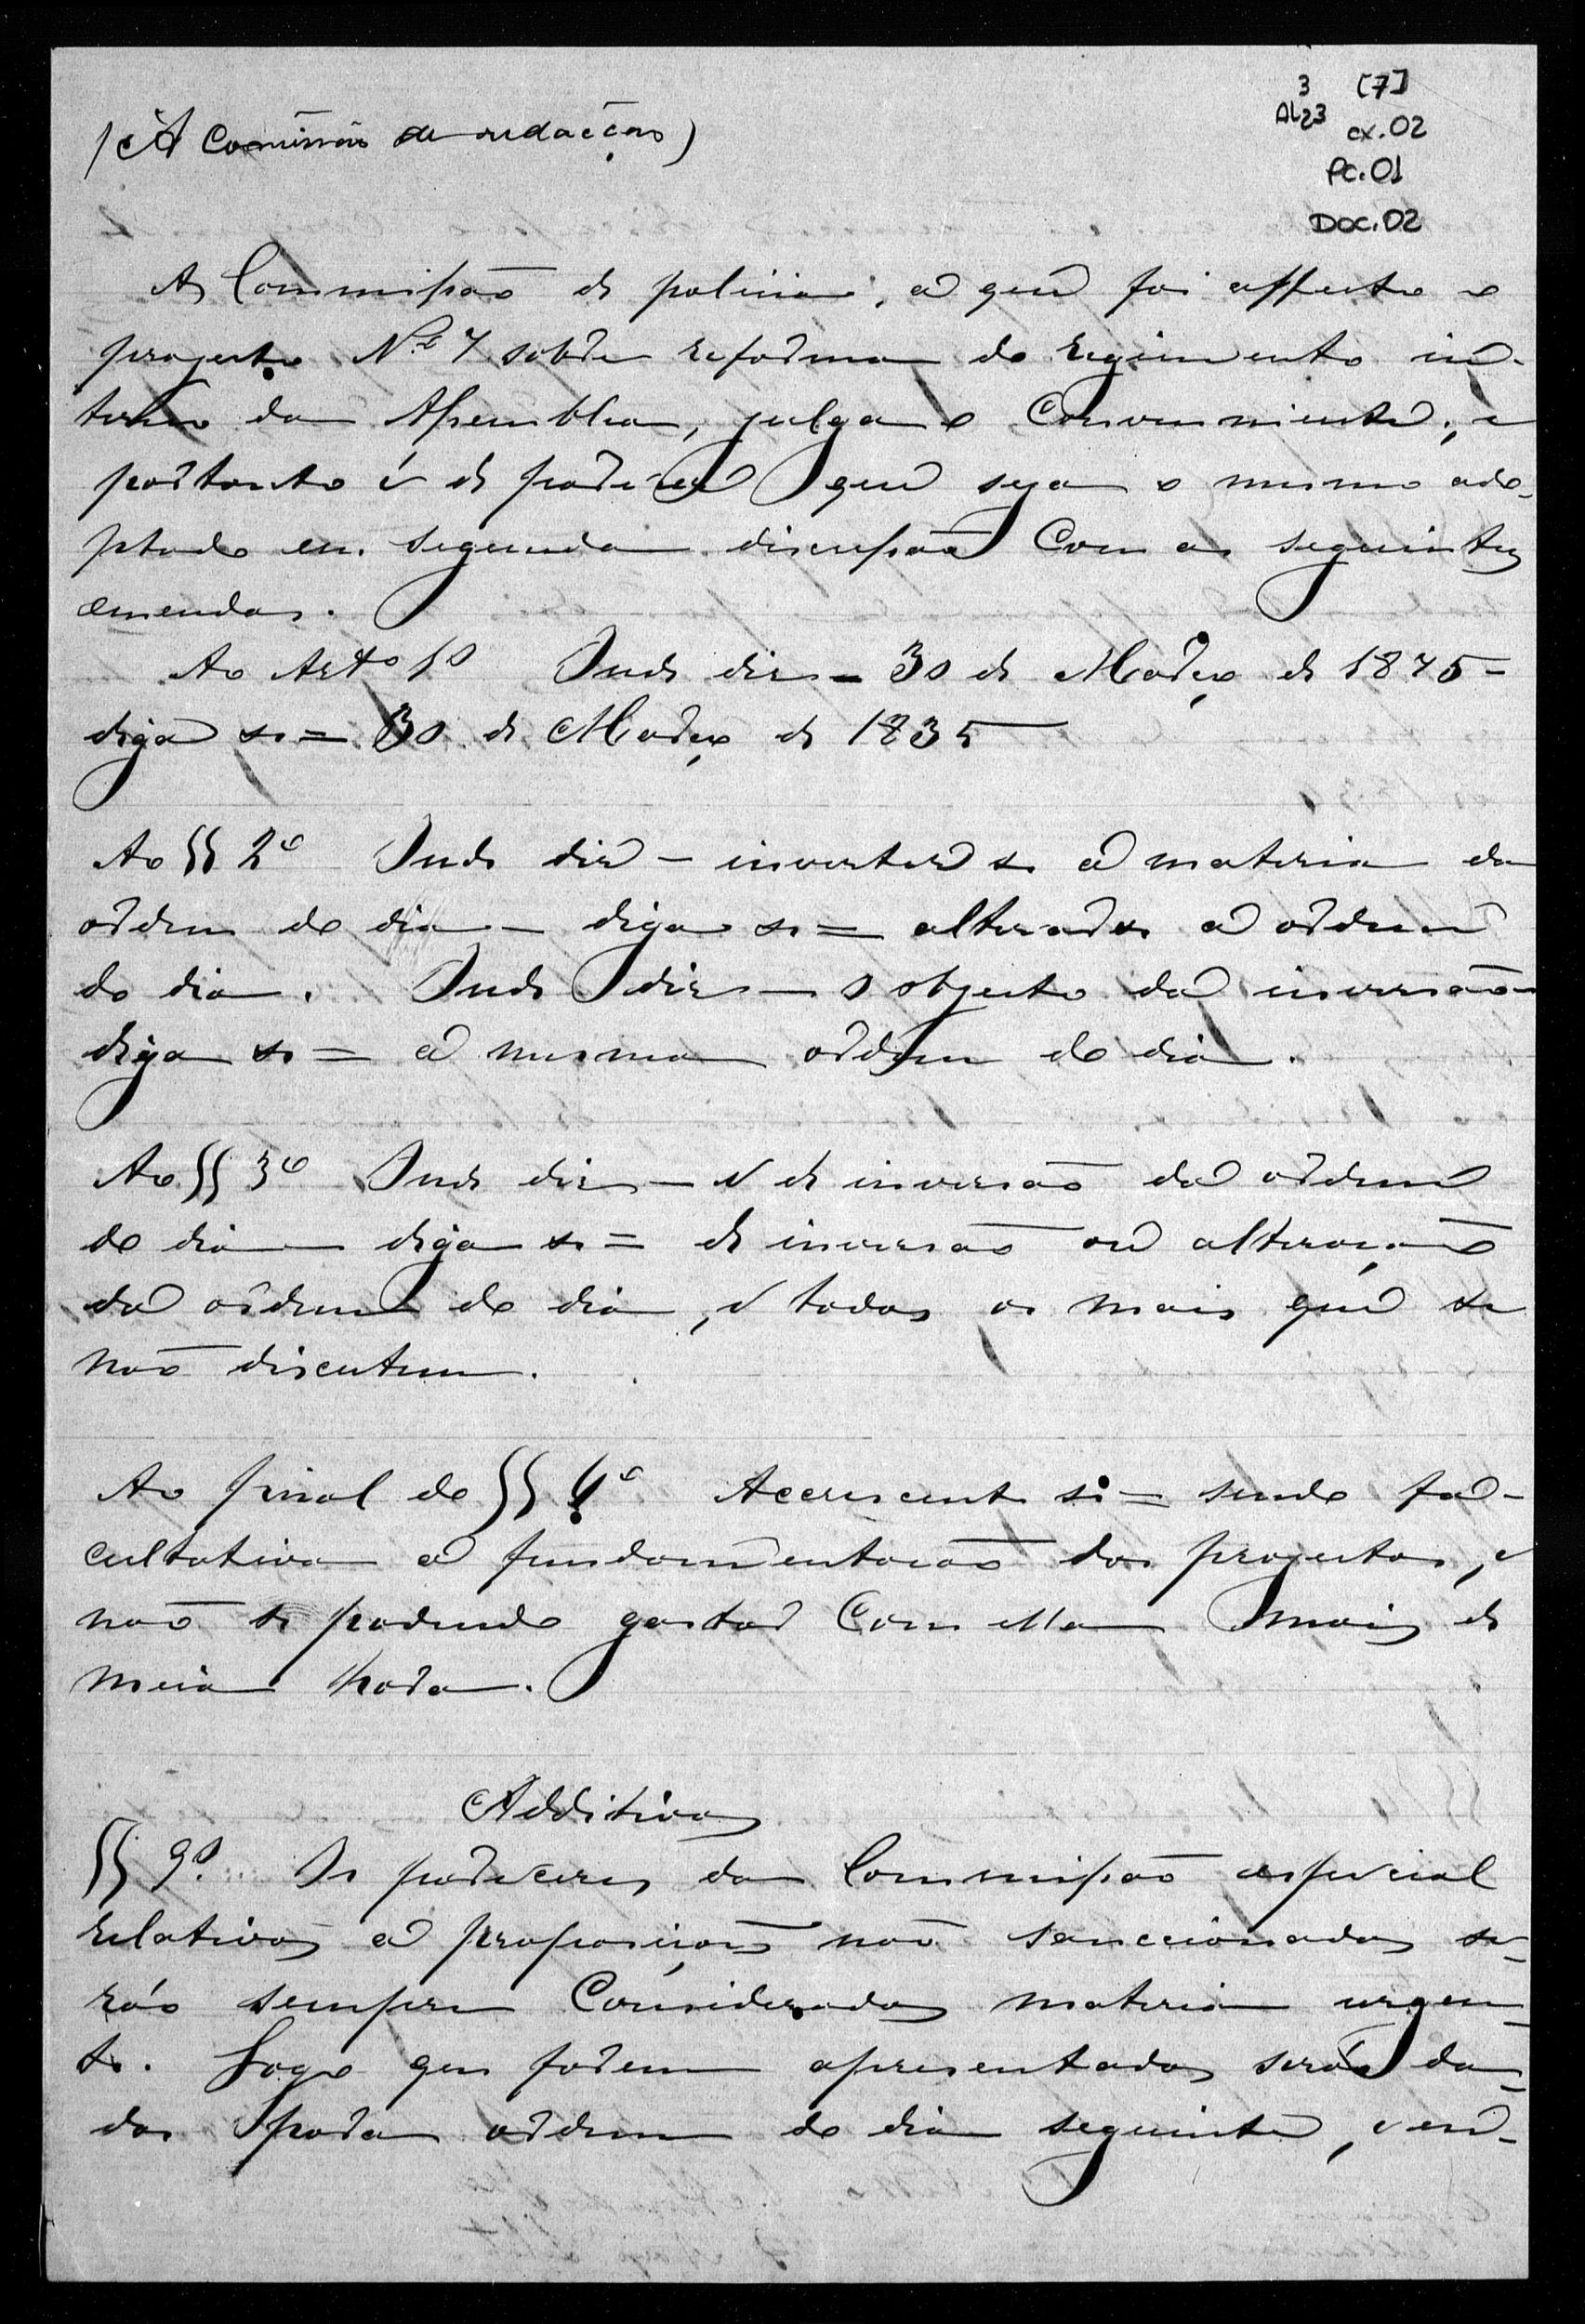 3 [7]
AL23
cx.02
Pc.01
Doc.02
(A Commissão de redacção)
A Commissão de policia, a quem foi affecto o
projecto N.º 7 sobre reforma do regimento in-
terno da Assemblea, julga o conveniente, e
portanto é de parecer que seja o mesmo ado-
ptado em segunda discussão com as seguintes
emendas.
Ao Artº 1º Onde diz - 30 de Março de 1875 -
diga se = 30 de Março de 1835
Ao §§ 2º Onde diz - inverter se a materia da
ordem do dia - diga se = alterar se a ordem
do dia. Onde diz - o objecto da inversão -
diga se = a mesma ordem do dia.
Ao §§ 3º Onde diz - e de inversão da ordem
do dia - diga se = de inversão ou alteração
da ordem do dia, e todos os mais que se
não discutem.
Ao final do §§ Accrescente se = sendo fa-
cultativa a fundamentacão dos projectos, e
não se podendo gastar com ella mais de
meia hora.
Additivos
§§ 9º. Os pareceres da Commissão especial
relativos a proposições não sanccionadas se-
rão sempre considerados materia urgen-
te. Logo que forem apresentados serão da-
dos para ordem do dia seguinte, e en-